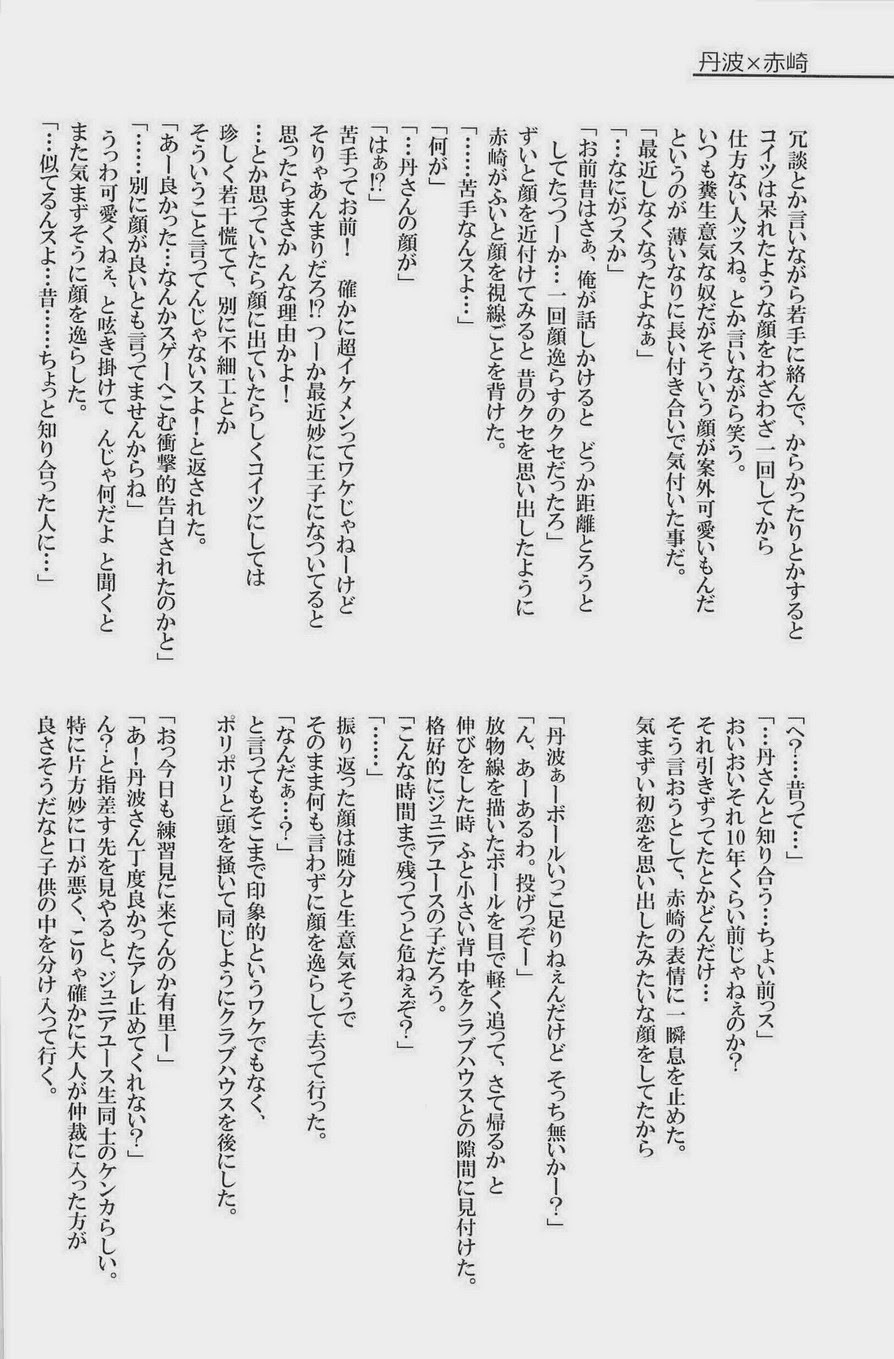 丹波×赤崎
冗談とか言いながら若手に絡んで、からかったりとかすると
コイツは呆れたような顔をわざわざ一回してから
仕方ない人ッスね。とか言いながら笑う。
いつも糞生意気な奴だがそういう顔が案外可愛いもんだ
というのが 薄いなりに長い付き合いで気付いた事だ。
「最近しなくなったよなぁ」
「…なにがっスか」
「お前昔はさぁ、俺が話しかけると どっか距離とろうと
してたっつーか…一回顔逸らすのクセだったろ」
ずいと顔を近付けてみると 昔のクセを思い出したように
赤崎がふいと顔を視線ごとを背けた。
「……苦手なんスよ…」
「何が」
「…丹さんの顔が」
「はぁ!?」
苦手ってお前！ 確かに超イケメンってワケじゃねーけど
そりゃあんまりだろ!? つーか最近妙に王子になついてると
思ったらまさか んな理由かよ！
…とか思っていたら顔に出ていたらしくコイツにしては
珍しく若干慌てて、別に不細工とか
そういうこと言ってんじゃないスよ！と返された。
「あー良かった…なんかスゲーへこむ衝撃的告白されたのかと」
「……別に顔が良いとも言ってませんからね」
うっわ可愛くねぇ、と呟き掛けて んじゃ何だよ と聞くと
また気まずそうに顔を逸らした。
「…似てるんスよ…昔……ちょっと知り合った人に…」
「へ？…昔って…」
「…丹さんと知り合う…ちょい前っス」
おいおいそれ10年くらい前じゃねぇのか？
それ引きずってたとかどんだけ…
そう言おうとして、赤崎の表情に一瞬息を止めた。
気まずい初恋を思い出したみたいな顔をしてたから
「丹波ぁーボールいっこ足りねぇんだけど そっち無いかー？」
「ん、あーあるわ。投げっぞー」
放物線を描いたボールを目で軽く追って、さて帰るか と
伸びをした時 ふと小さい背中をクラブハウスとの隙間に見付けた。
格好的にジュニアユースの子だろう。
「こんな時間まで残ってっと危ねぇぞ？」
「……」
振り返った顔は随分と生意気そうで
そのまま何も言わずに顔を逸らして去って行った。
「なんだぁ…？」
と言ってもそこまで印象的というワケでもなく、
ポリポリと頭を掻いて同じようにクラブハウスを後にした。
「おっ今日も練習見に来てんのか有里ー」
「あ！丹波さん丁度良かったアレ止めてくれない？」
ん？と指差す先を見やると、ジュニアユース生同士のケンカらしい。
特に片方妙に口が悪く、こりゃ確かに大人が仲裁に入った方が
良さそうだなと子供の中を分け入って行く。